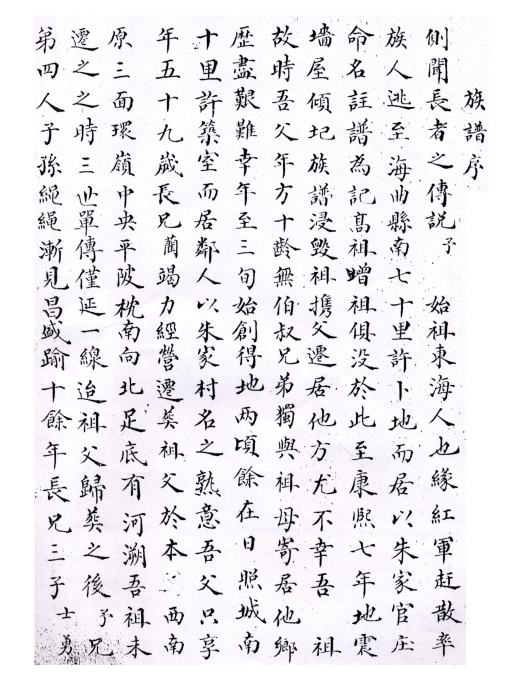 族譜序
側聞長者之傳説予 始祖東海人也緣紅軍赶散率
族人逃至海曲縣南七十里許卜地而居以朱家官庄
命名註譜為記髙祖曽祖俱没於此至康熙七年地震
墻屋傾圮族譜浸毀祖攜父遷居他方尤不幸吾 祖
故時吾父年方十齡無伯叔兄弟獨與祖母寄居他鄉
歴盡艱難幸年至三旬始創得地两頃餘在日照城南
十里許築室而居鄰人以朱家村名之熟意吾父只享
年五十九歲長兄蘭竭力經營遷葖祖父於本 西南
原三面環嶺中央平陂枕南向北足底有河溯吾祖未
遷之之時三世單傳僅延一線迨祖父歸葖之後予兄
第四人子孫繩繩漸見昌盛踰十餘年長兄三子士勇